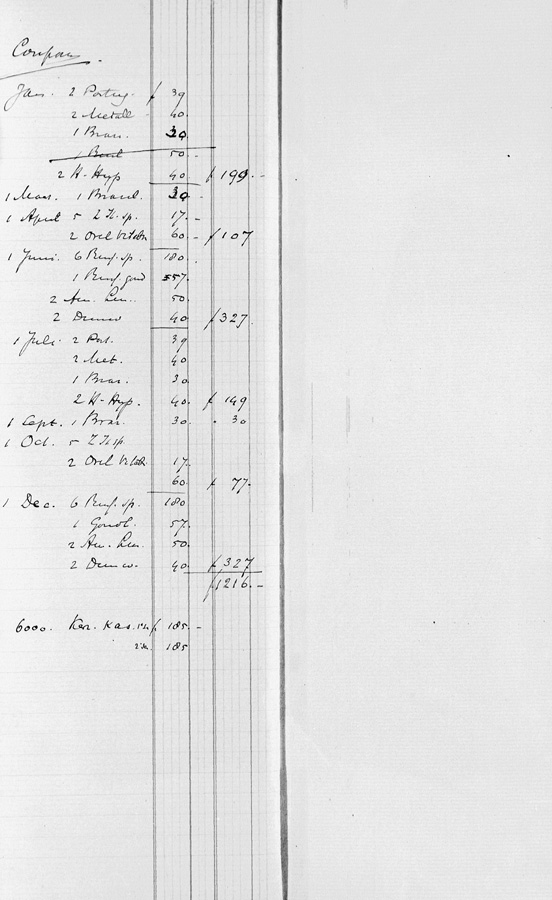 Coupons.
Jan. 2 Portug. f 39
2 Metall - 40.
1 Bras. 30
50 -
2 H-Hyp 40 f 199. -
1 Maas. 1 Brasil. 30 -
1 April 5 Z.H. sp. 17. -
2 Orel Vitebsk 60 - f 107
1 Juni. 6 Russ. sp. 180.
1 Russ. goud 57.
2 Am. 50.
2 40 f 327.
1 Juli. 2 Port. 39
2 Met. 40
1 Bras. 30
2 H-Hyp. 40. f 149
1 Sept. 1 Bras. 30. . 30
1 Oct. 5 Z.H. sp.
2 Orel Vitebsk 17.
60. f 77-
1 Dec. 6 Russ. sp. 180
1 Goud. 57.
2 Am. 50.
2 40. f 327
f 1216. -
6000. Ker. Kas. f 185. -
185